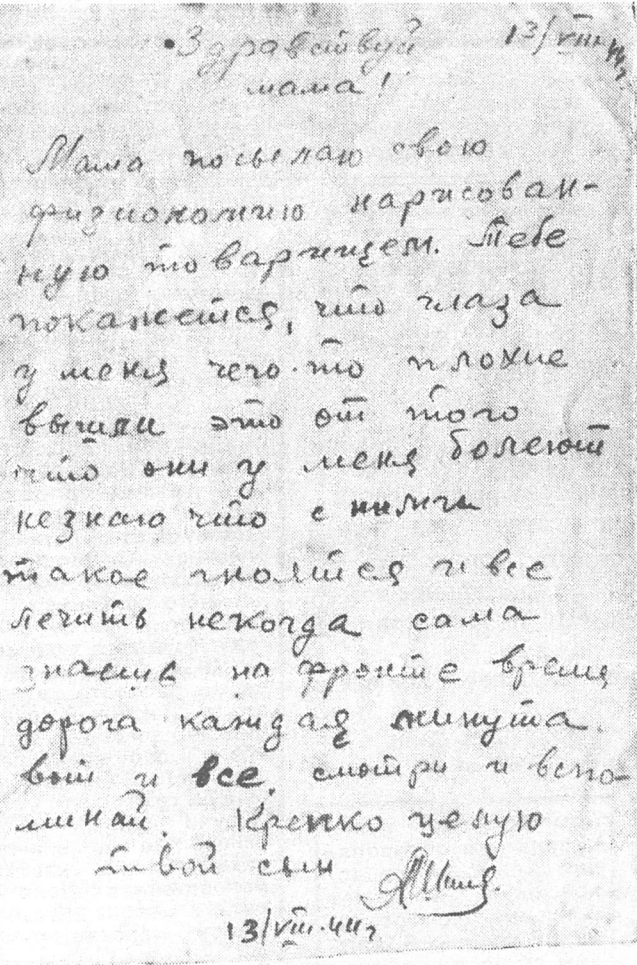 Здравствуй 13/VIII-44г.
мама!
Мама посылаю свою
физиономию нарисован-
ную товарищем. Тебе
покажется, что глаза
у меня чего-то плохие
вышли это от того
что они у меня болеют
незнаю что с ними
такое гноятся и все
лечить некогда сама
знаешь на фронте время
дорога каждая минута.
вот и все. смотри и вспо-
минай. Крепко целую
твой сын
13/VIII-44г